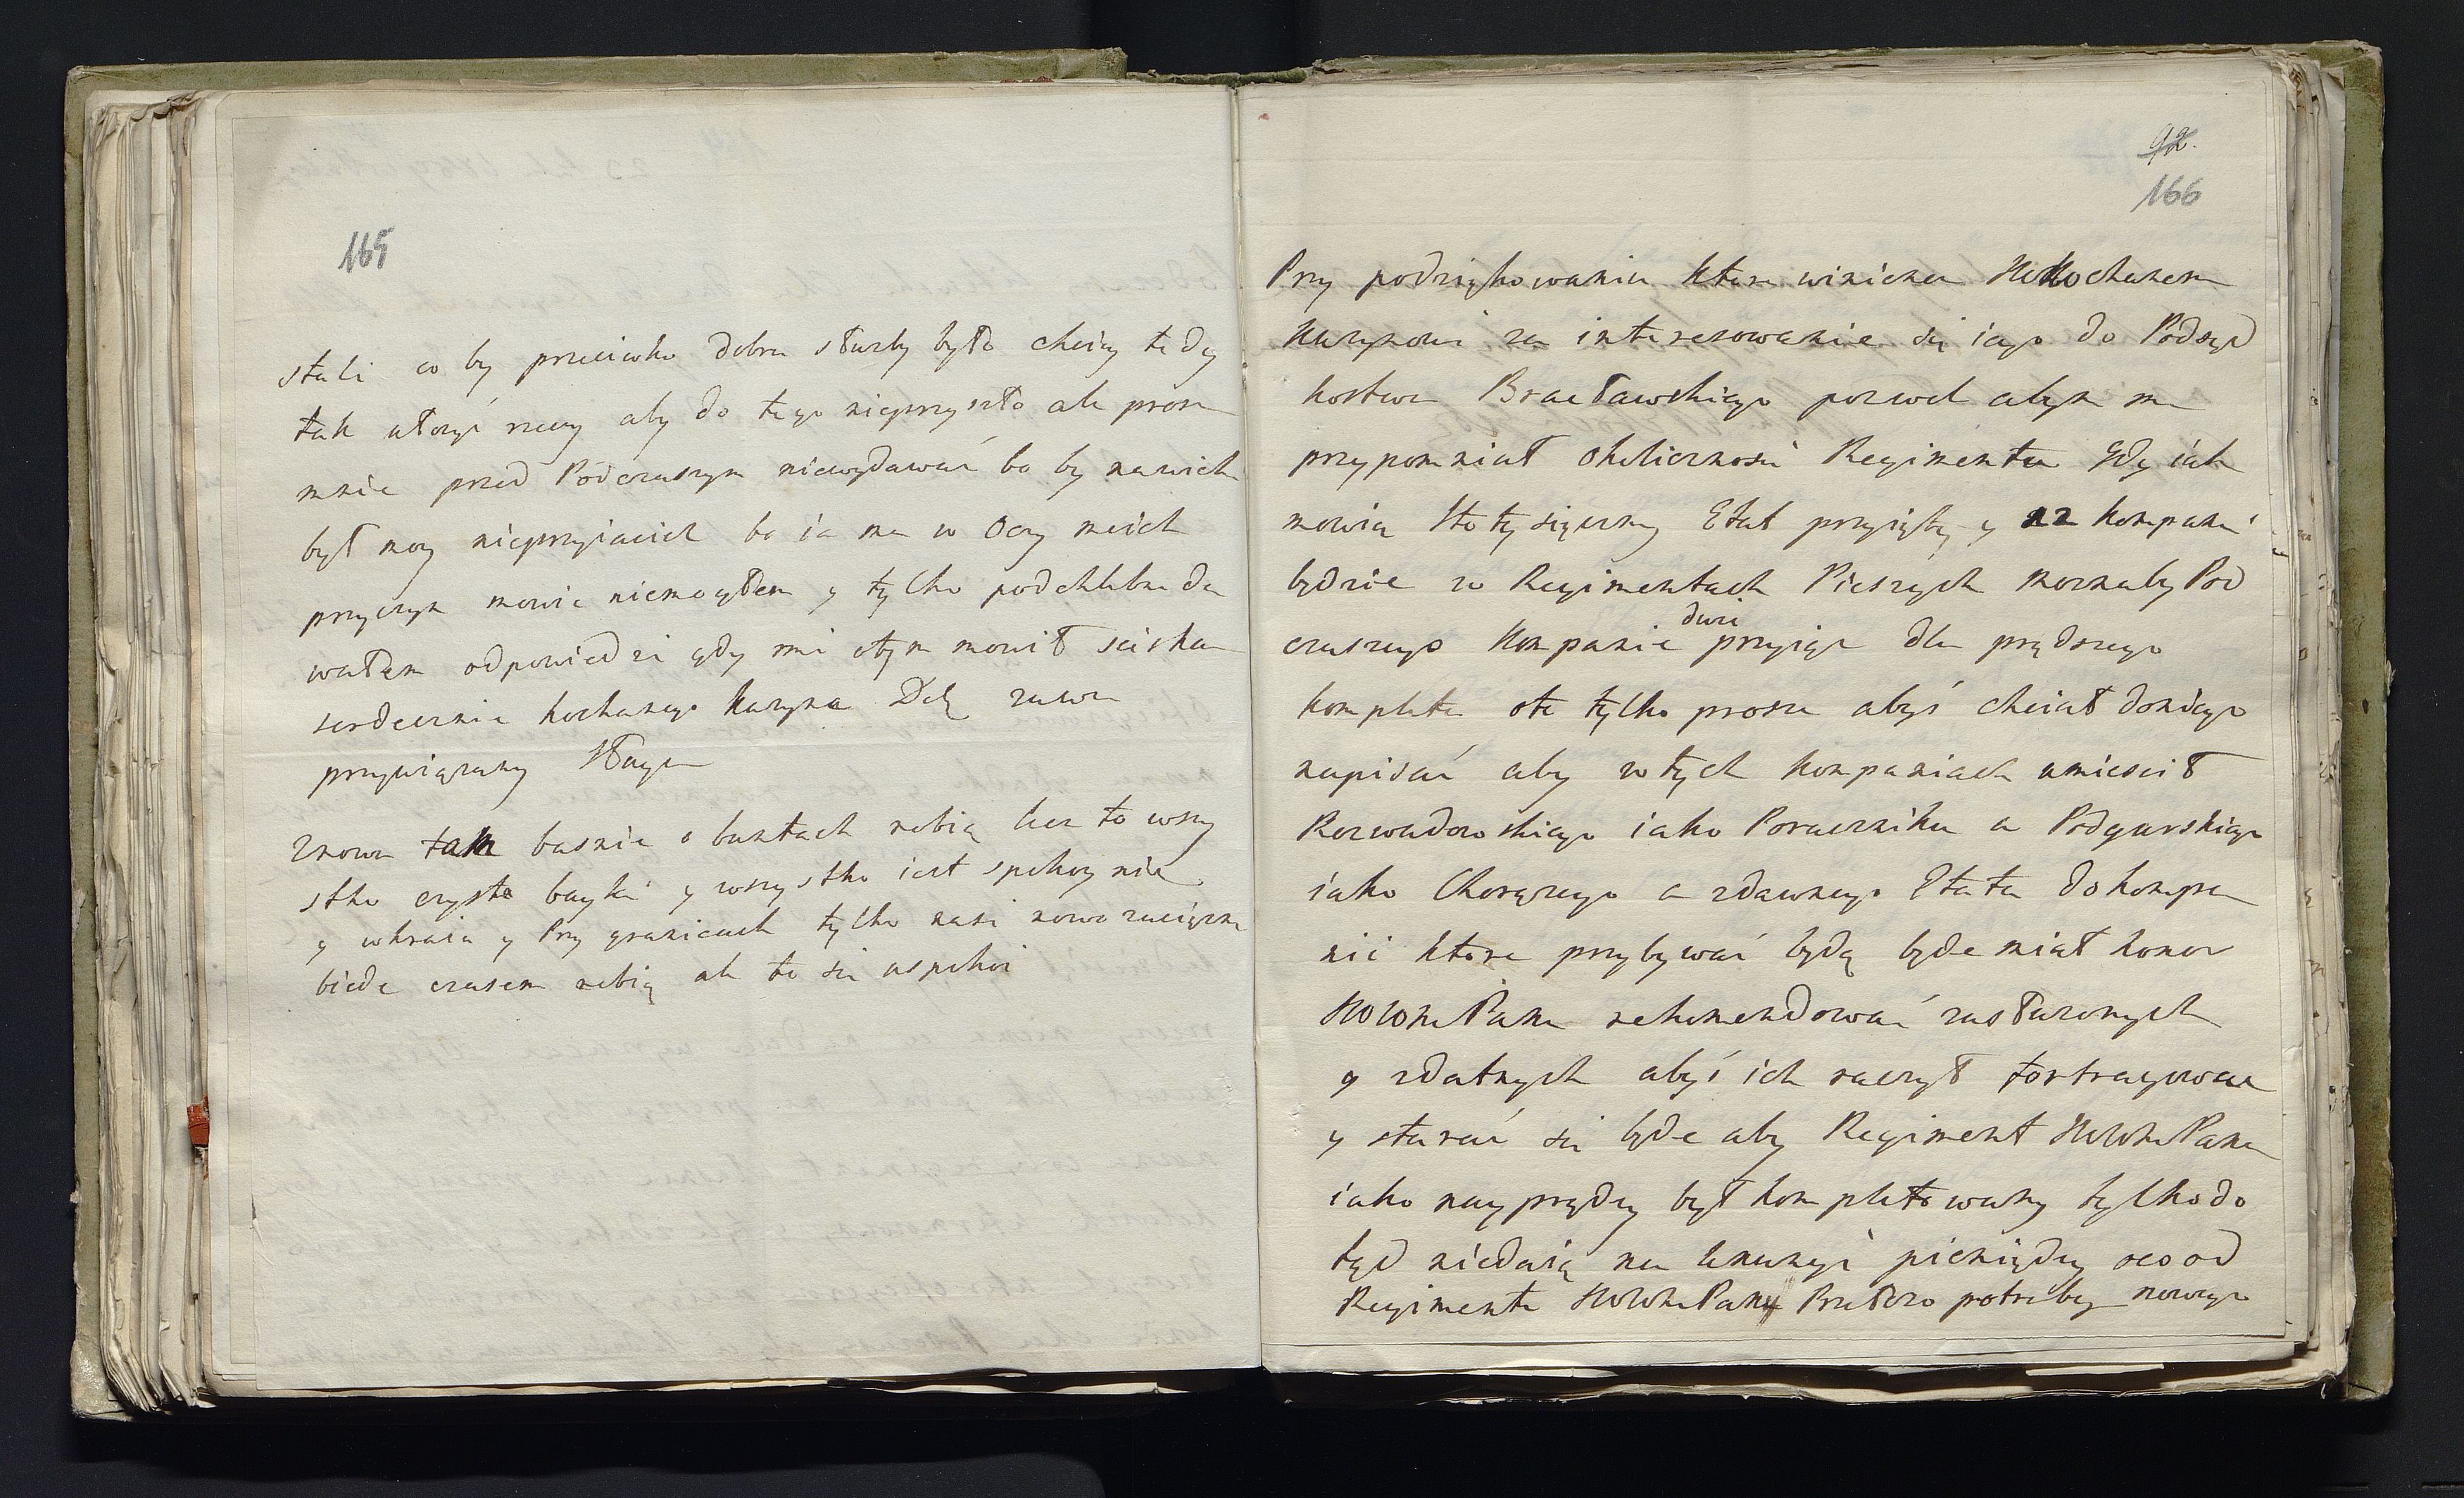 165
stali co by przeciwko dobru słuzby było chciey tedy
tak ułozyć rzeczy aby do tego nieprzyszło ale prosze
mnie przed Podczaszym niewydawać bo by na wieki
był moy nieprzyiaciel bo ia mu w oczy
przyczyn mowic niemogłem y tylko podchlebne da
wałem odpowiedzi gdy mi otym mowił sciskam
serdecznie kochanego Kuzyna Dełę zawsze
przywiązany Sługa
Znowu tam basnie o buntach robią lecz to wszy
stko czyste bayki y wszystko iest spokoynie
y wkraiu y Przy granicach tylko nasi nowo zaciężni
biede czasem robią ale to sie uspokoi
92.
166
Przy podziękowaniu ktore winienem Kochanem
Kuzynowi za interesowanie się iego do Podsęd
kostwa Bracławskiego pozwol abym mu
przypomniał okolicznosci Regimentu Gdy iak
mowią Stotysięczny Etat przyięty y 12 kompanii
będzie w Regimentach Pieszych moznaby Pod
czaszego Kompanie dwie przyiąc dla prędszego
kompletu ote tylko prosze abyś chciał doniego
napisać aby wtych Kompaniach umiescił
Rozwadowskiego iako Porucznika a Podgurskiego
iako Chorązego a zdawnego Etatu do kompa
nii ktore przybywać będą będe miał honor
Pana rekomendować zasłuzonych
y zdatnych abyś ich raczył fortragować
y starać sie będe aby Regiment Pana
iako nayprędzy był kompletowany tylko do
tąd niedaią na pieniędzy oco od
Regimentu Pana potrzeby nowego